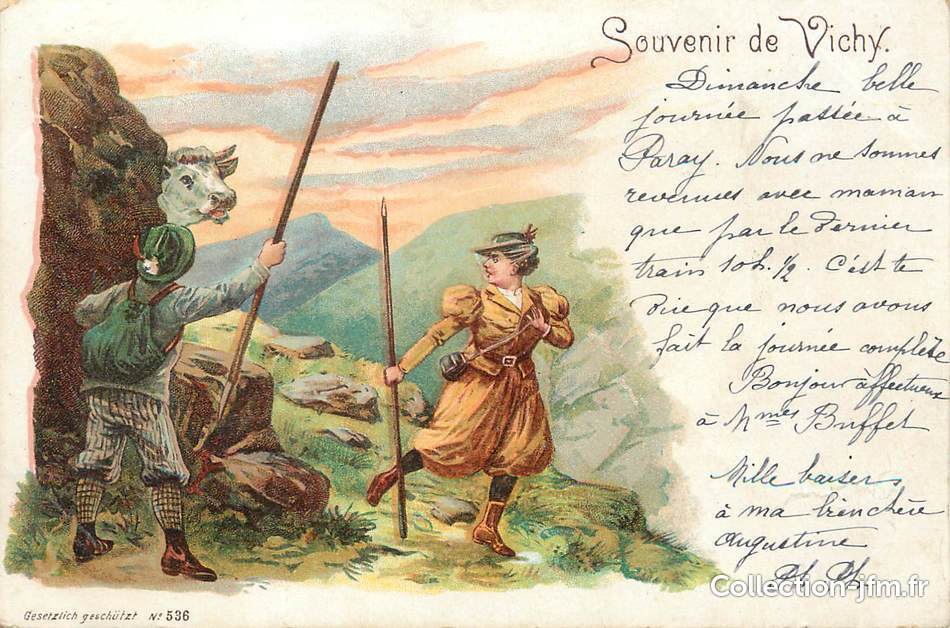 Souvenir de Vichy.
Dimanche belle
journée passée à
Paray. Nous ne sommes
revenues avec maman
que par le dernier
train 10h. 1/2. C'est te
dire que nous avons
fait la journée complète
Bonjour affectueux
à Mmes Buffet
Mille baisers
à ma bien chère
Augustine
Gesetzlich geschützt No 536
Collection-jfm.fr